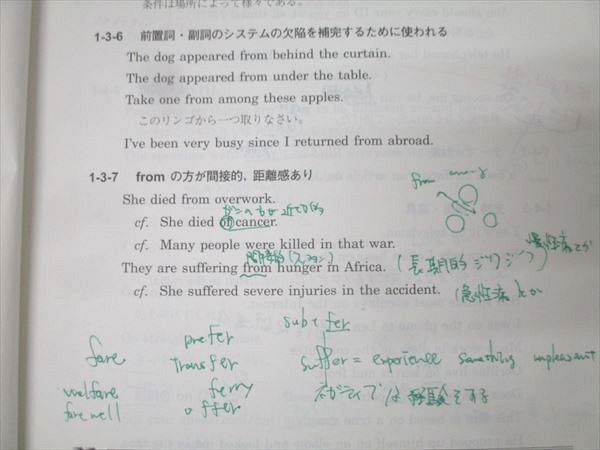 条件は場所によって様々である。
1-3-6 前置詞・副詞のシステムの欠陥を補完するために使われる
The dog appeared from behind the curtain.
The dog appeared from under the table.
Take one from among these apples.
このリンゴから一つ取りなさい。
I've been very busy since I returned from abroad.
1-3-7 from の方が間接的，距離感あり
from
She died from overwork.
cf. She died of cancer.
cf. Many people were killed in that war.
間接的
They are suffering from hunger in Africa. (長期的 ジワジワ)
cf. She suffered severe injuries in the accident. (急性病とか
sub + fer
prefer
fare transfer suffer = experience something unpleasant
welfare ferry ネガティブな経験をする
farewell offer